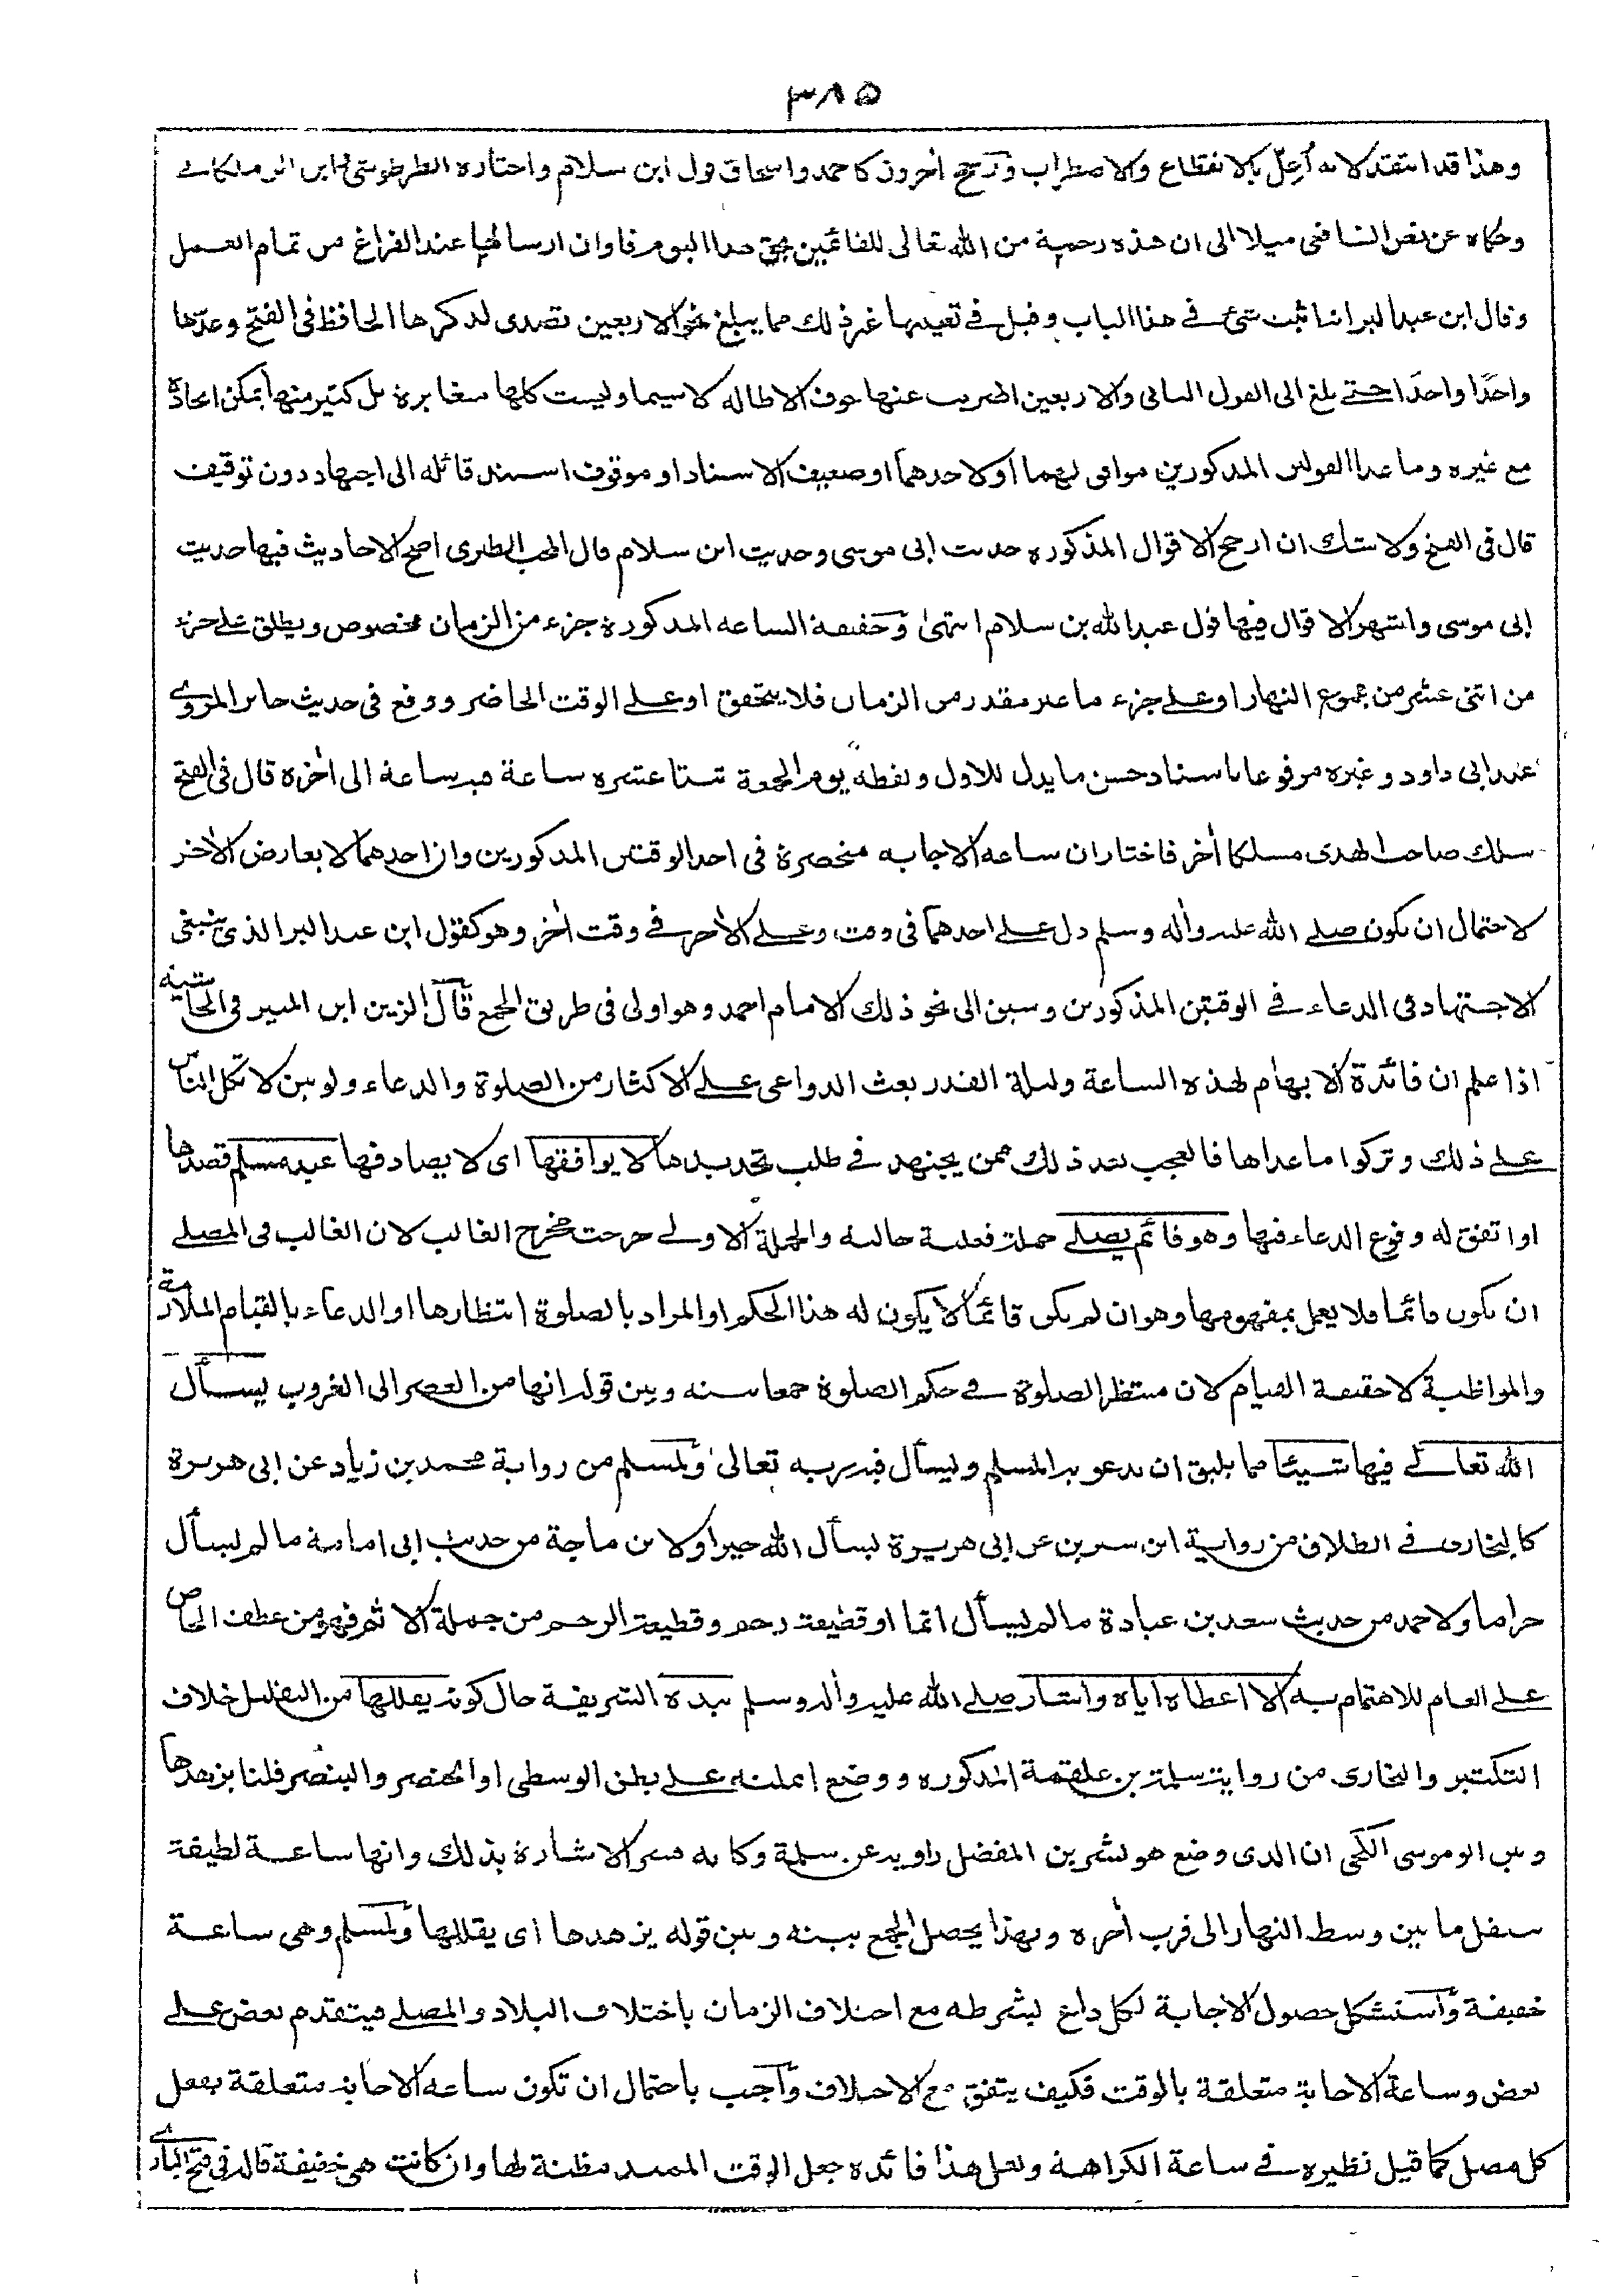 ٣٨٥
وهذا قد انتقد لانه أعلّ بالانقطاع والاضطراب ورجح آخرون كاحمد واسحاق قول ابن سلام واختاره الطرطوشي ابن الزملكاني
وحكاه عن نص الشافعي ميلا الى ان هذه رحمة من الله تعالى للقائمين بحق هذا اليوم فاوان ارسالها عند الفراغ من تمام العمل
وقال ابن عبد البر انه اثبت شئ في هذا الباب وقيل في تعيينها غير ذلك مما يبلغ نحو الاربعين تصدى لذكرها الحافظ في الفتح وعدّها
واحدًا واحدًا حتى بلغ الى القول الثاني والاربعين اضربت عنها خوف الاطالة لا سيما وليست كلها متغايرة بل كثير منها يمكن اتحاده
مع غيره وما عدا القولين المذكورين موافق لهما او لاحدهما او ضعيف الاسناد او موقوف استند قائله الى اجتهاد دون توقيف
قال في الفتح ولا شك ان ارجح الاقوال المذكورة حديث ابي موسى وحديث ابن سلام قال المحب الطبري اصح الاحاديث فيها حديث
ابي موسى واشهر الاقوال فيها قول عبد الله بن سلام انتهى وحقيقة الساعة المذكورة جزء من الزمان مخصوص ويطلق على جزء
من اثني عشر من مجموع النهار او على جزء ما غير مقدر من الزمان فلا يتحقق او على الوقت الحاضر ووقع في حديث جابر المروي
عند ابي داود وغيره مرفوعا باسناد حسن ما يدل للاول ولفظه يوم الجمعة ثنتا عشرة ساعة فيه ساعة الى آخره قال في الفتح
سلك صاحب الهدى مسلكا آخر فاختار ان ساعة الاجابة منحصرة في احد الوقتين المذكورين وان احدهما لا يعارض الآخر
لاحتمال ان يكون صلى الله عليه وآله وسلم دل على احدهما في وقت وعلى الآخر في وقت آخر وهو كقول ابن عبد البر الذي ينبغي
الاجتهاد في الدعاء في الوقتين المذكورين وسبق الى نحو ذلك الامام احمد وهو اولى في طريق الجمع قال الزين ابن المنير في الحاشية
اذا علم ان فائدة الابهام لهذه الساعة وليلة القدر بعث الدواعي على الاكثار من الصلوة والدعاء ولو بين لاتكل الناس
على ذلك وتركوا ما عداها فالعجب بعد ذلك ممن يجتهد في طلب تحديدها لا يوافقها اي لا يصادفها عبد مسلم قصدها
او اتفق له وقوع الدعاء فيها وهو قائم يصلي جملة فعلية حالية والجملة الاولى خرجت مخرج الغالب لان الغالب في المصلي
ان يكون قائما فلا يعمل بمفهومها وهو ان لم يكن قائما لا يكون له هذا الحكم او المراد بالصلوة انتظارها او الدعاء بالقيام الملازمة
والمواظبة لا حقيقة القيام لان منتظر الصلوة في حكم الصلوة جمعا بينه وبين قوله انها من العصر الى الغروب يسأل
الله تعالى فيها شيئا مما يليق ان يدعو به المسلم ويسأل فيه ربه تعالى ولمسلم من رواية محمد بن زياد عن ابي هريرة
كالبخاري في الطلاق من رواية ابن سيرين عن ابي هريرة يسأل الله خيرا ولابن ماجة من حديث ابي امامة ما لم يسأل
حراما ولاحمد من حديث سعد بن عبادة ما لم يسأل اثما او قطيعة رحم وقطيعة الرحم من جملة الاثم فهو من عطف الخاص
على العام للاهتمام به الا اعطاه اياه واشار صلى الله عليه وآله وسلم بيده الشريفة حال كونه يقللها من التقليل خلاف
التكثير والبخاري من رواية سلمة بن علقمة المذكورة ووضع انملته على بطن الوسطى او الخنصر والبنصر قلنا يزهدها
وبين ابو موسى الكجي ان الذي وضع هو بشر بن المفضل راويه عن سلمة وكانه فسر الاشارة بذلك وانها ساعة لطيفة
تنتقل ما بين وسط النهار الى قرب آخره وبهذا يحصل الجمع بينه وبين قوله يزهدها اي يقللها ولمسلم وهي ساعة
خفيفة واستشكل حصول الاجابة لكل داع بشرطه مع اختلاف الزمان باختلاف البلاد والمصلي فيتقدم بعض على
بعض وساعة الاجابة متعلقة بالوقت فكيف يتفق مع الاختلاف وأجيب باحتمال ان تكون ساعة الاجابة متعلقة بفعل
كل مصل كما قيل نظيره في ساعة الكراهة ولعل هذا فائدة جعل الوقت الممتد مظنة لها وان كانت هي خفيفة قاله في فتح الباري